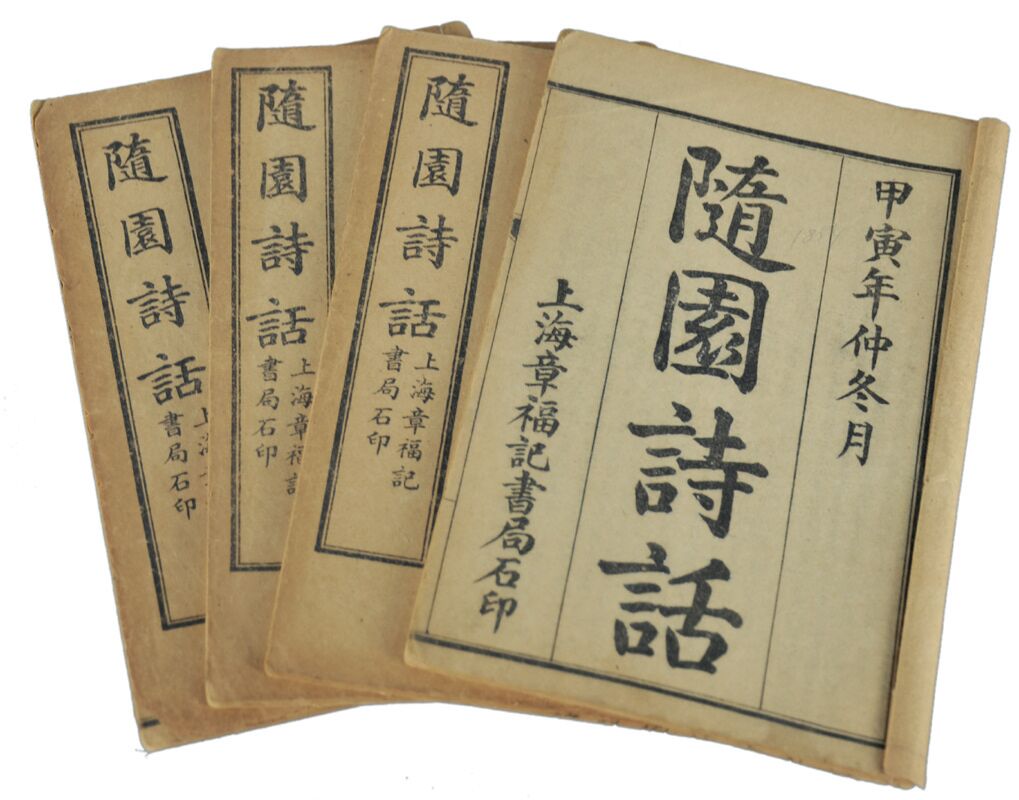 甲寅年仲冬月
隨園詩話
上海章福記書局石印
隨園詩話
上海章福記
書局石印
隨園詩話
上海章福記
書局石印
隨園詩話
上海
書局石印